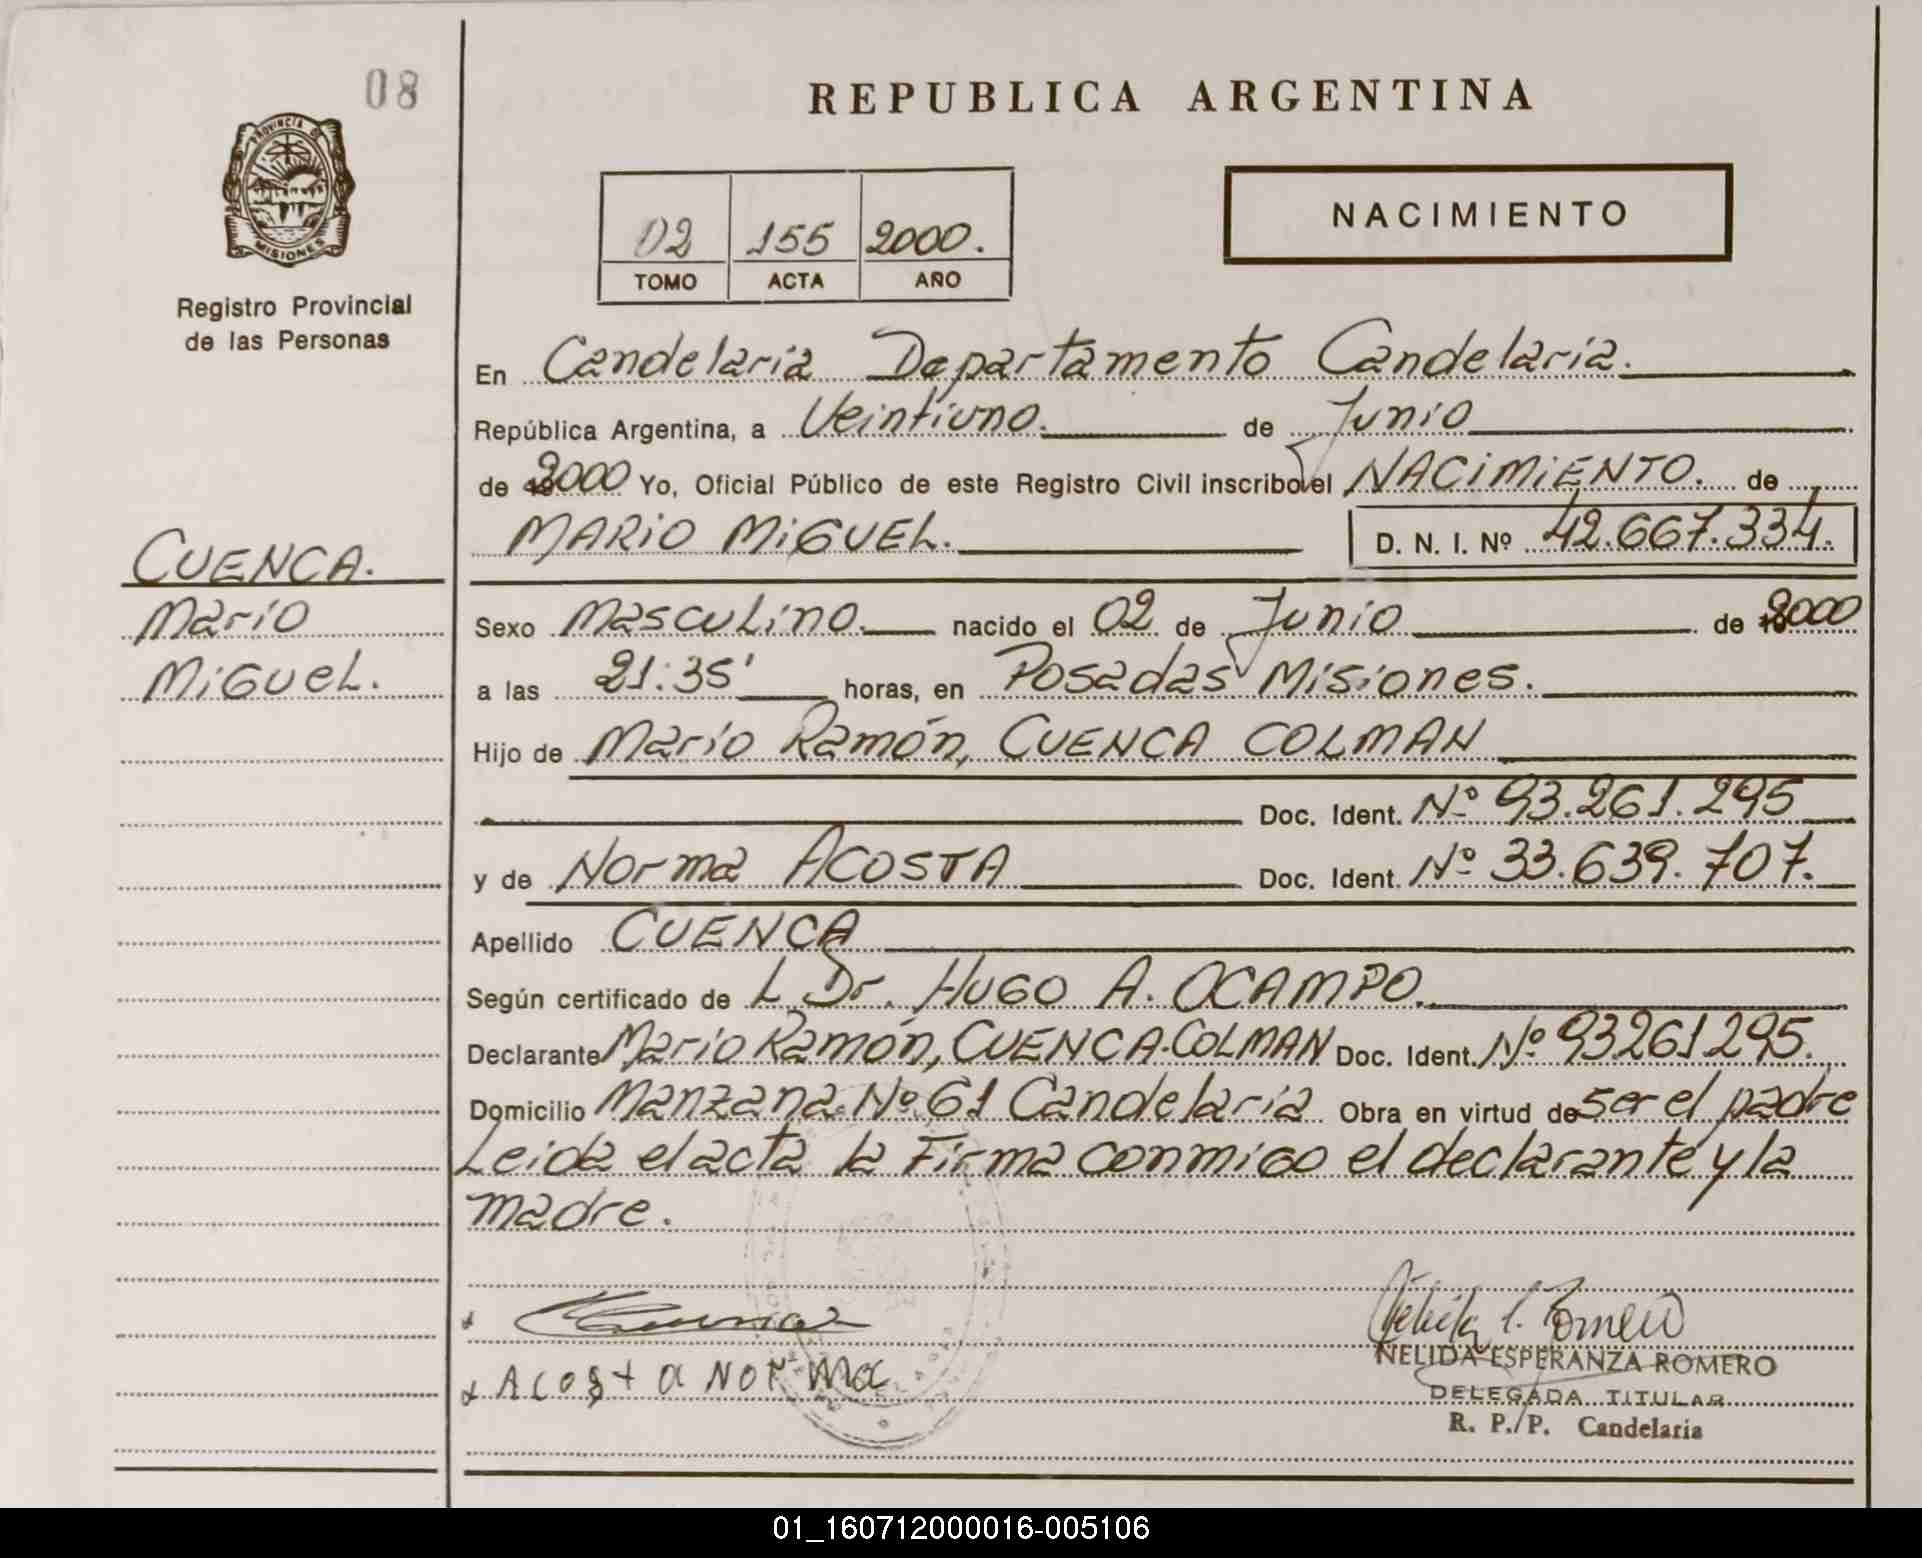 08
REPUBLICA ARGENTINA
PROVINCIA DE
MISIONES
Registro Provincial
de las Personas
02 155 2000.
TOMO ACTA AÑO
NACIMIENTO
En Candelaria Departamento Candelaria.
República Argentina, a Veintiuno. de Junio
de 2000 Yo, Oficial Público de este Registro Civil inscribo el NACIMIENTO. de
MARIO MIGUEL. D. N. I. Nº 42.667.334.
CUENCA.
Mario
MIGUEL.
Sexo Masculino. nacido el 02 de Junio de 2000
a las 21:35' horas, en Posadas Misiones.
Hijo de Mario Ramón, CUENCA COLMAN
Doc. Ident. Nº 93.261.295
y de Norma ACOSTA Doc. Ident. Nº 33.639.707.
Apellido CUENCA
Según certificado de L Dr. HUGO A. OCAMPO.
Declarante Mario Ramón, CUENCA-COLMAN Doc. Ident. Nº 93261295.
Domicilio Manzana Nº 61 Candelaria Obra en virtud de ser el padre
Leida el acta la Firma conmigo el declarante y la
madre.
x Cuenca
x Acosta Norma
Nelida E. Romero
NELIDA ESPERANZA ROMERO
DELEGADA TITULAR
R. P./P. Candelaria
01_160712000016-005106